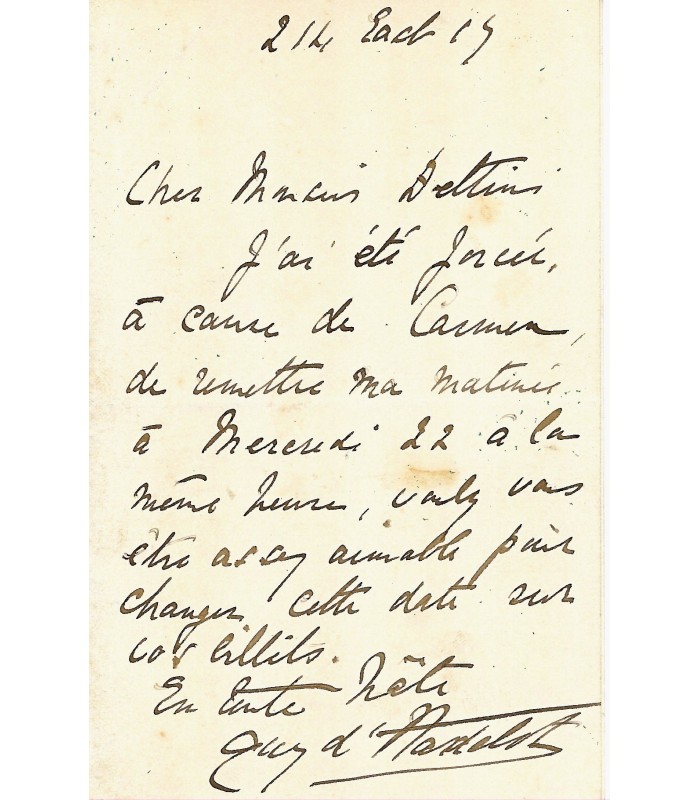 214 East 17
Cher Monsieur Dettini
J'ai été forcée,
à cause de Carmen,
de remettre ma matinée
à Mercredi 22 à la
même heure, voulez vous
être assez aimable pour
changer cette date sur
vos billets.
En toute hâte
Guy d'Hardelot